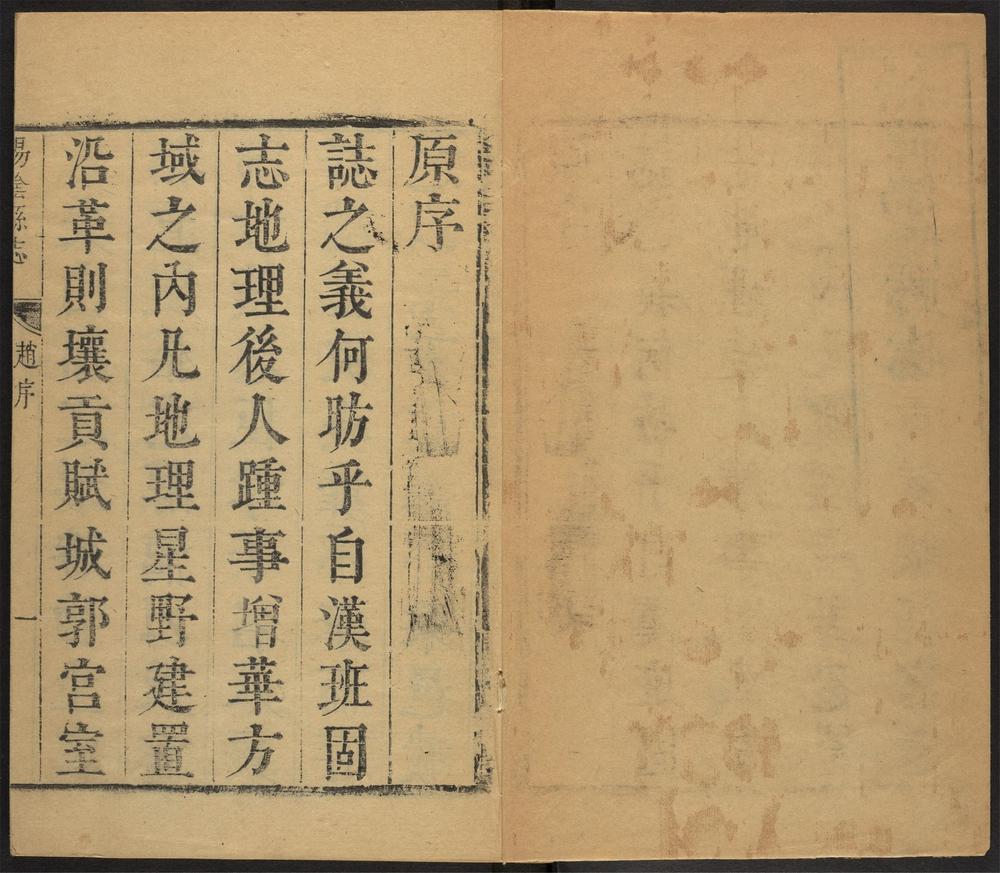 原序
誌之義何昉乎自漢班固
志地理後人踵事增華方
域之內凡地理星野建置
沿革則壤貢賦城郭宮室
湯陰縣志
趙序
一